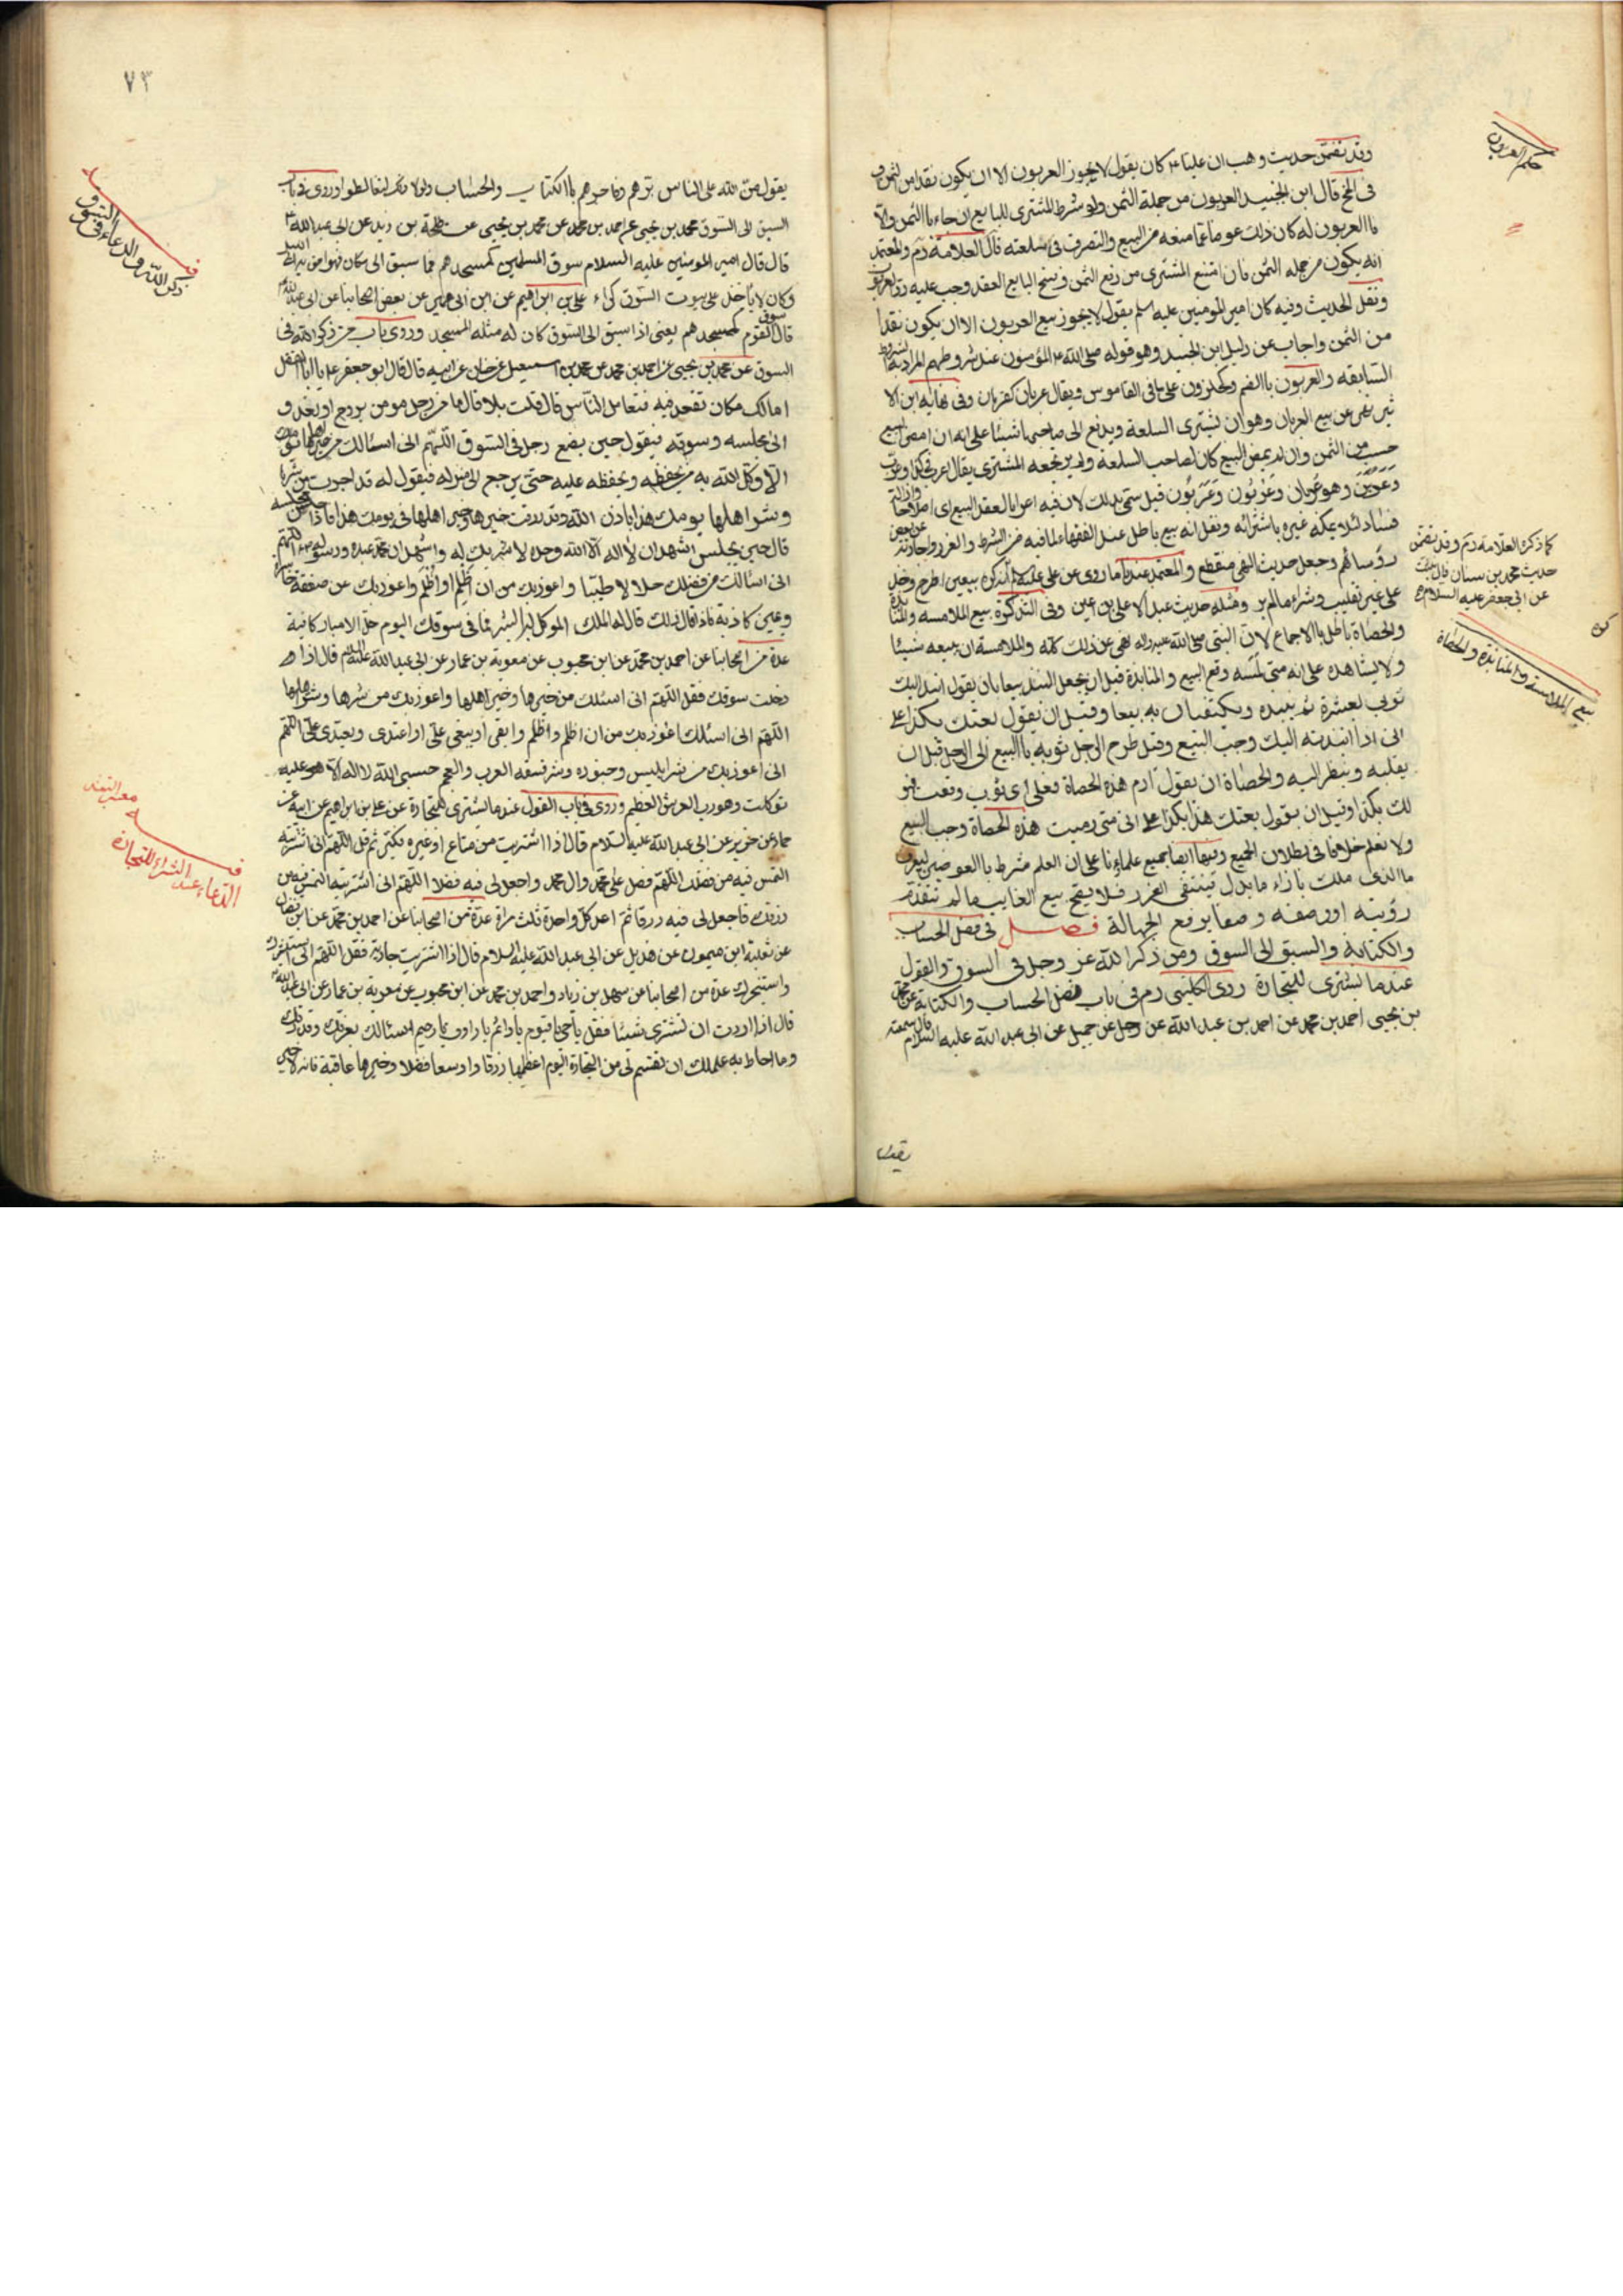 وقد تضمن حديث وهب ان عليا ع كان يقول لا يجوز العربون الا ان يكون نقدا من الثمن و
فى الخ قال ابن الجنيد العربون من جملة الثمن ولو شرط المشترى للبايع ان جاء باالثمن والا
فاالعربون له كان ذلك عوضا عما منعه من البيع والتصرف فى سلعته قال العلامة رم والمعتمد
انه يكون من جمله الثمن فان امتنع المشترى من دفع الثمن وفسخ البايع العقد وجب عليه رد العربون
ونقل الحديث وفيه كان امير المومنين عليه سلم يقول لا يجوز بيع العربون الا ان يكون نقدا
من الثمن واجاب عن دليل ابن الجنيد وهو قوله صلى الله ع المؤمنون عند شروطهم المراد به الشروط
السابقه والعربون باالضم وكحلزون على ما فى القاموس ويقال عربان كقربان وفى نهايه ابن الا
ثير نهى عن بيع العربان وهو ان تشترى السلعة ويدفع الى صاحبها شيئا على انه ان امضى البيع
حسب من الثمن وان لم يمض البيع كان لصاحب السلعة ولم يرتجعه المشترى يقال اعرب فى كذا وعرب
وعربن وهو عربان وعربون وعربون قيل سمى بذلك لان فيه اعرابا لعقد البيع اى اصلاحا وازالة
فساد لئلا يملكه غيره باشترائه ونقل انه بيع باطل عند الفقهاء لما فيه من الشرط والغرر واجازته عن بعض
رؤسائهم وجعل حديث النهى منقطع والمعتمد عندنا ما روى عن على عليه لم انه كره بيعين اطرح وخذ
على غير تقليب وشراء مالم ير ومثله حديث عبد الاعلى بن عين وفى التذكرة بيع الملامسه والمنابذه
والحصاة باطل باالاجماع لان النبى صلى الله عليه واله نهى عن ذلك كله والملامسة ان يبيعه شيئا
ولا يشاهده على انه متى لمسه وقع البيع والمنابذة قيل ان يجعل النبذ بيعا بان يقول انبذ اليك
ثوبى بعشرة ثم ينبذه ويكتفيان به بيعا وقيل ان يقول بعتك بكذا على
انى اذا انبذته اليك وجب البيع وقيل طرح الرجل ثوبه باالبيع الى الرجل قبل ان
يقلبه وينظر اليه والحصاة ان يقول ارم هذه الحصاة فعلى اى ثوب وقعت فهو
لك بكذا وقيل ان يقول بعتك هذا بكذا على انى متى رميت هذه الحصاة وجب البيع
ولا نعلم خلافا فى بطلان الجميع وفيها ايضا جميع علماءنا على ان العلم شرط باالعوضين ليعرف
ماالذى ملك بازاء ما بذل فينتفى الغرر فلا يصح بيع الغايب ما لم تتقدم
رؤيته او وصفه وصفا يرفع الجهالة فصل فى فضل الحساب
والكتابة والسبق الى السوق ومن ذكر الله عز وجل فى السوق والقول
عند ما يشترى للتجارة روى الكلينى رم فى باب فضل الحساب والكتابة عن محمد
بن يحيى احمد بن محمد عن احمد بن عبد الله عن رجل عن جميل عن ابى عبد الله عليه السلام قال سمعته
حكم العربون
كما ذكره العلامه رم وقد تضمن
حديث محمد بن سنان قال
عن ابى جعفر عليه السلام
بيع الملامسة والمنابذة والحصاة
يقول من الله على الناس برهم وفاجرهم باالكتاب والحساب ولولا ذلك لتغالطوا وروى فى باب
السبق الى السوق محمد بن يحيى عن احمد بن محمد عن محمد بن يحيى عن طلحة بن زيد عن ابى عبد الله
قال قال امير المومنين عليه السلام سوق المسلمين كمسجدهم فما سبق الى مكان فهو احق به الى الليل
وكان لا ياخذ على بيوت السوق كراء على بن ابراهيم عن ابن ابى عمير عن بعض اصحابنا عن ابى عبد الله
قال سوق القوم كمسجدهم يعنى اذا سبق الى السوق كان له مثله المسجد وروى باب من ذكر الله فى
السوق عن محمد بن يحيى عن احمد بن محمد عن محمد بن اسمعيل عن حنان عن ابيه قال قال ابو جعفر ع يا ابا الفضل
امالك مكان تقعد فيه فتعامل الناس قال قلت بلا قال ما من رجل مومن يروح او يغدو
الى مجلسه وسوقه فيقول حين يضع رجل فى السوق اللهم انى اسئالك من خيرها
الا وكل الله به من يحفظه ويحفظه عليه حتى يرجع الى منزله فيقول له قد اجرت من شرها
وشر اهلها يومك هذا باذن الله وقد رزقت خيرها وخير اهلها فى يومك هذا فاذا جلس مجلسه
قال حين يجلس اشهد ان لا اله الا الله وحده لا شريك له واشهد ان محمد عبده ورسوله اللهم
انى اسئالك من فضلك حلالا طيبا واعوذ بك من ان اظلم او اظلم واعوذ بك من صفقة خاسرة
ويمين كاذبة فاذا قال ذلك قال له الملك الموكل ابشر فما فى سوقك اليوم
عدة من اصحابنا عن احمد بن محمد عن ابن محبوب عن معوية بن عمار عن ابى عبد الله عليه السلام قال اذا
دخلت سوقك فقل اللهم انى اسئلك من خيرها وخير اهلها واعوذ بك من شرها وشر اهلها
اللهم انى اعوذ بك من ان اظلم او اظلم وابغى او يبغى على او اعتدى ويعتدى على اللهم
انى اعوذ بك من شر ابليس وجنوده وشر فسقه العرب والعجم حسبى الله لا اله الا هو عليه
توكلت وهو رب العرش العظيم وروى فى باب القول عند ما يشترى للتجارة عن على بن ابراهيم عن ابيه عن
حماد عن حريز عن ابى عبد الله عليه السلام قال اذا اشتريت من متاع او غيره فكبر ثم قل اللهم انى اشتريته
التمس فيه من فضلك اللهم فصل على محمد وال محمد واجعل لى فيه فضلا اللهم انى اشتريته التمس فيه من
رزقك فاجعل لى فيه رزقا ثم اعد كل واحدة ثلث مرات عدة من اصحابنا عن احمد بن محمد عن ابن فضال
عن ثعلبة ابن ميمون عن هذيل عن ابى عبد الله عليه السلام قال اذا اشتريت جارية فقل اللهم انى استشيرك
واستخيرك عدة من اصحابنا عن سهل بن زياد واحمد بن محمد عن ابن محبوب عن معوية بن عمار عن ابى عبد الله
قال اذا اردت ان تشترى شيئا فقل يا حى يا قيوم يا دائم يا راوف يا رحيم اسئالك بعزتك وقدرتك
وما احاط به علمك ان تقسم لى من التجارة اليوم اعظمها رزقا واوسعها فضلا وخيرها عاقبة فانه لا خير
٧٣
ذكر الله والدعاء فى السوق
الدعاء عند الشراء للتجارة